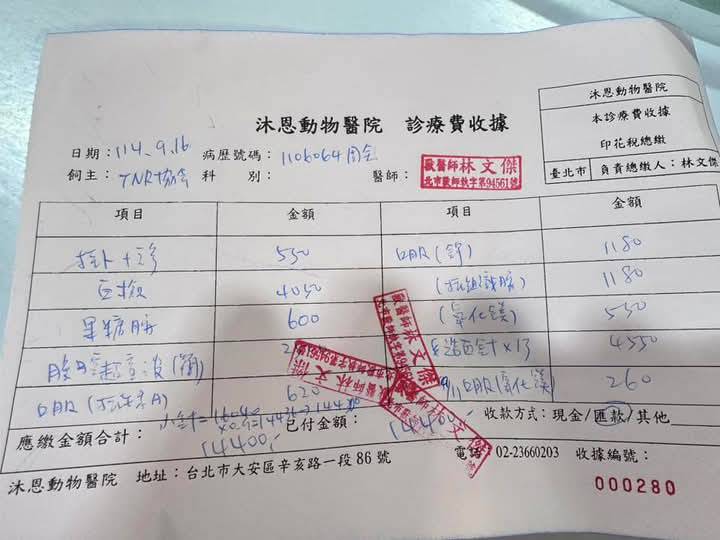 沐恩動物醫院
本診療費收據
印花稅總繳
臺北市 負責總繳人：林文傑
沐恩動物醫院 診療費收據
日期：114.9.16 病歷號碼：1106064
飼主：TNR協會 科 別： 醫師： 獸醫師林文傑 北市獸師執字第94561號
項目 金額 項目 金額
掛+診 550 口服( ) 1180
血檢 4050 (抗組織胺) 1180
果糖胺 600 (氧化鎂) 550
腹部超音波 造血針×13 4550
口服 620 口服(氧化鎂) 260
小計=16040
應繳金額合計：14400 已付金額：14400 收款方式：現金/匯款/其他
沐恩動物醫院 地址：台北市大安區辛亥路一段86號 電話：02-23660203 收據編號：
000280